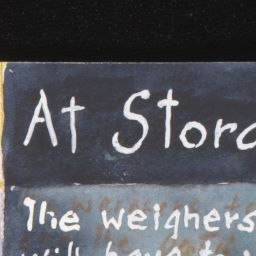 At Stor
The weighers
will have to